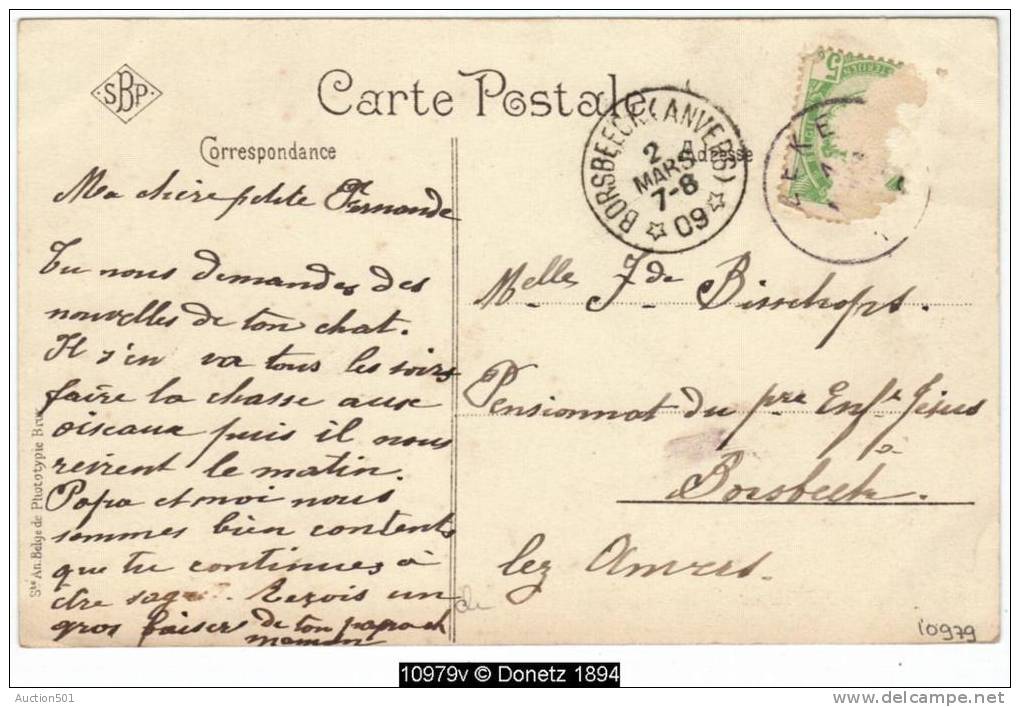 SBP
Carte Postale
Correspondance
Adresse
BORSBEECK (ANVERS)
2
MARS
7-8
09
5
Ma chère petite Fernande
Tu nous demandes des
nouvelles de ton chat.
Il s'en va tous les soirs
faire la chasse aux
oiseaux puis il nous
revient le matin.
Papa et moi nous
sommes bien contents
que tu continues à
être sage. Reçois un
gros baisers de ton papa et
maman
Melle Fde Bisschops.
Pensionnat du pre Enft Jésus
à
Borsbeek.
lez Anvers.
Sté An. Belge de Phototypie Brux.
10979
10979v © Donetz 1894
Auction501
delcampe.net